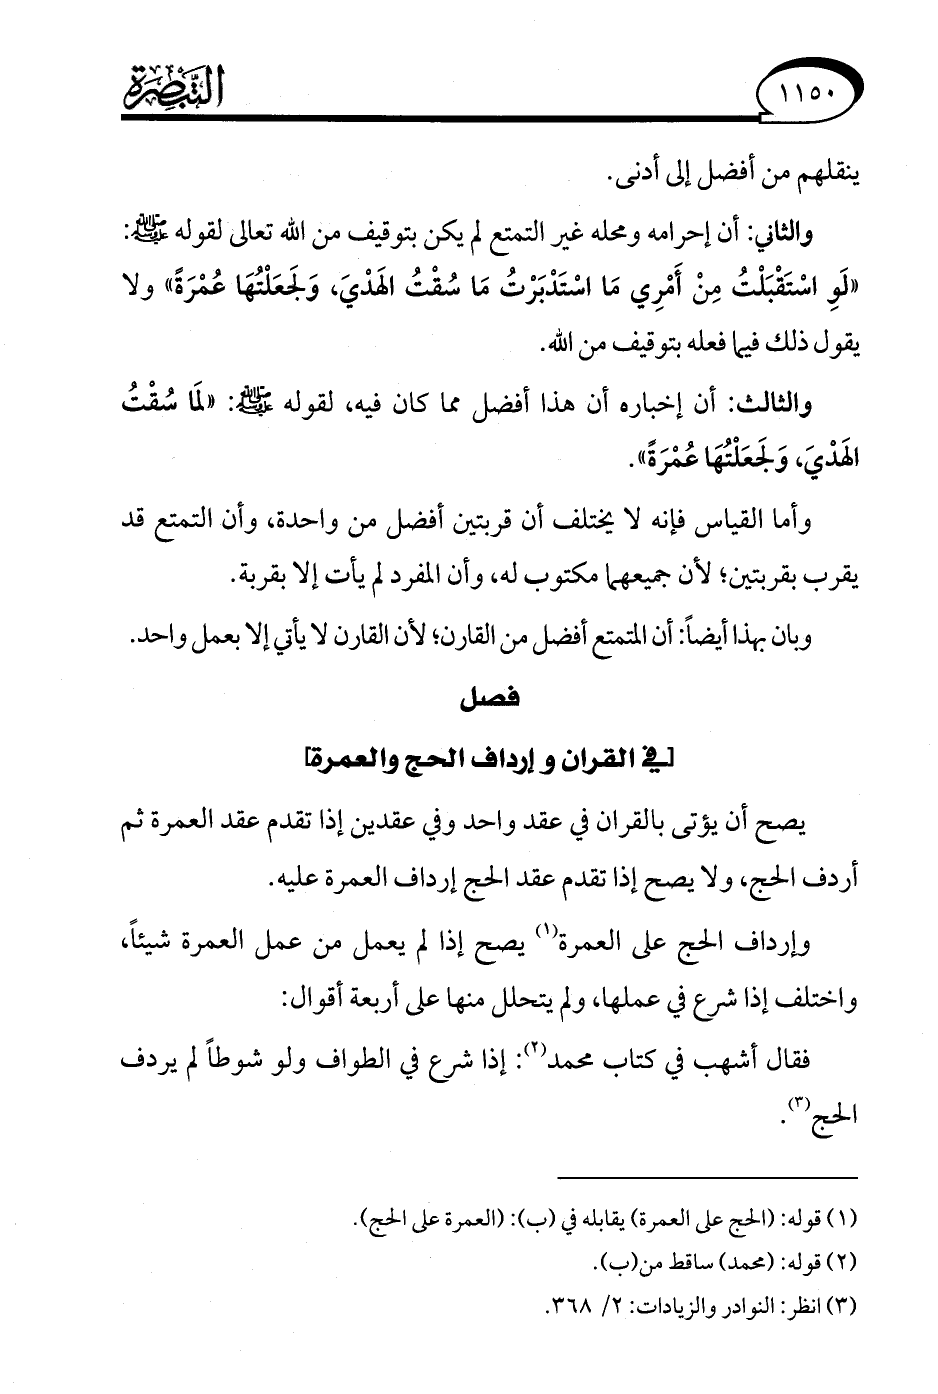 ١١٥٠
التبصرة
ينقلهم من أفضل إلى أدنى.
والثاني: أن إحرامه ومحله غير التمتع لم يكن بتوقيف من الله تعالى لقوله ﷺ:
«لَوِ اسْتَقْبَلْتُ مِنْ أَمْرِي مَا اسْتَدْبَرْتُ مَا سُقْتُ الهَدْيَ، وَلَجَعَلْتُهَا عُمْرَةً» ولا
يقول ذلك فيما فعله بتوقيف من الله.
والثالث: أن إخباره أن هذا أفضل مما كان فيه، لقوله ﷺ: «لَمَا سُقْتُ
الهَدْيَ، وَلَجَعَلْتُهَا عُمْرَةً».
وأما القياس فإنه لا يختلف أن قربتين أفضل من واحدة، وأن التمتع قد
يقرب بقربتين؛ لأن جميعهما مكتوب له، وأن المفرد لم يأت إلا بقربة.
وبان بهذا أيضاً: أن المتمتع أفضل من القارن؛ لأن القارن لا يأتي إلا بعمل واحد.
فصل
[في القران و إرداف الحج والعمرة]
يصح أن يؤتى بالقران في عقد واحد وفي عقدين إذا تقدم عقد العمرة ثم
أردف الحج، ولا يصح إذا تقدم عقد الحج إرداف العمرة عليه.
وإرداف الحج على العمرة(١) يصح إذا لم يعمل من عمل العمرة شيئاً،
واختلف إذا شرع في عملها، ولم يتحلل منها على أربعة أقوال:
فقال أشهب في كتاب محمد(٢): إذا شرع في الطواف ولو شوطاً لم يردف
الحج(٣).
(١) قوله: (الحج على العمرة) يقابله في (ب): (العمرة على الحج).
(٢) قوله: (محمد) ساقط من(ب).
(٣) انظر: النوادر والزيادات: ٢/ ٣٦٨.